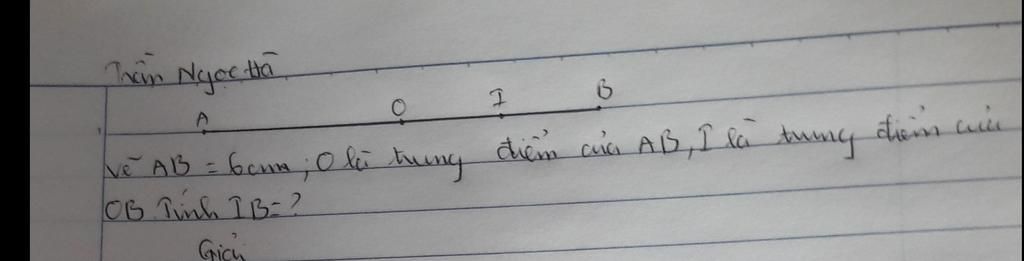 Trần Ngọc Hà
A O I B
Vẽ AB = 6cm; O là trung điểm của AB, I là trung điểm của
OB. Tính IB=?
Giải